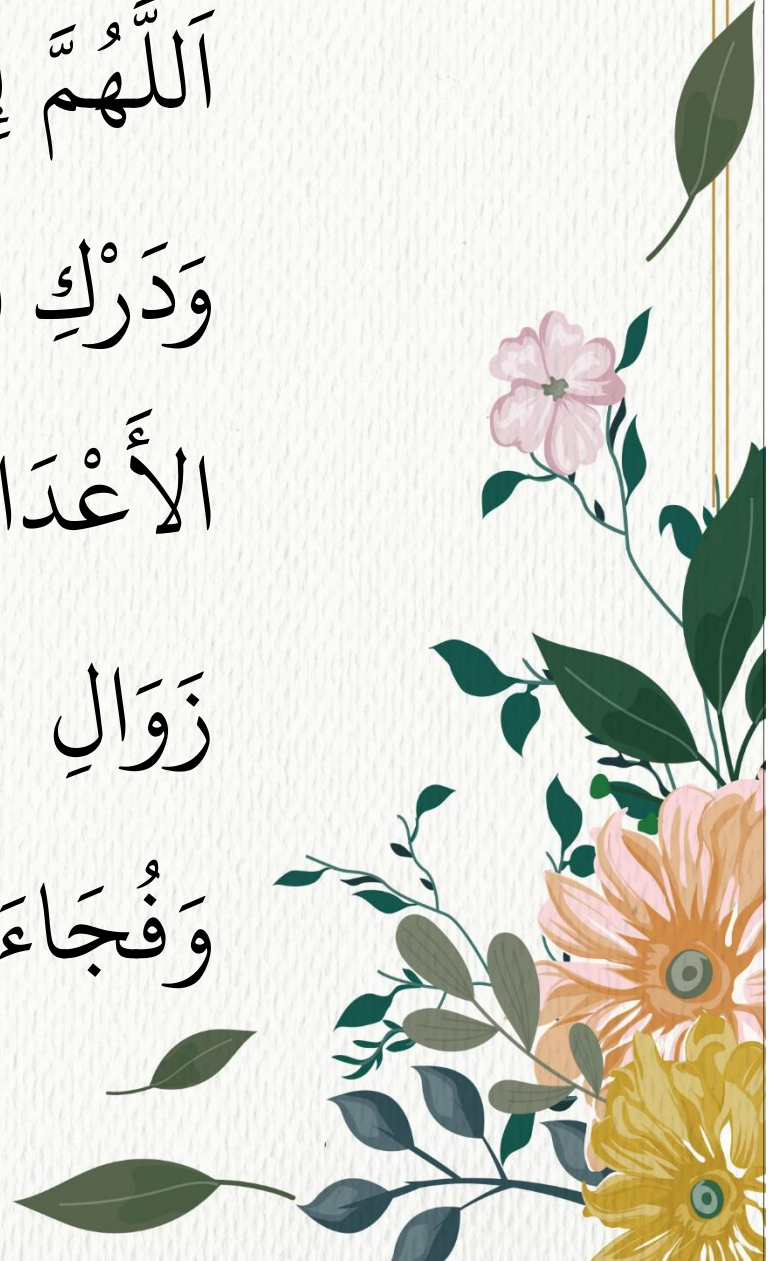 اَللَّهُمَّ
وَدَرْكِ
الأَعْدَا
زَوَالِ
وَفُجَاءَ